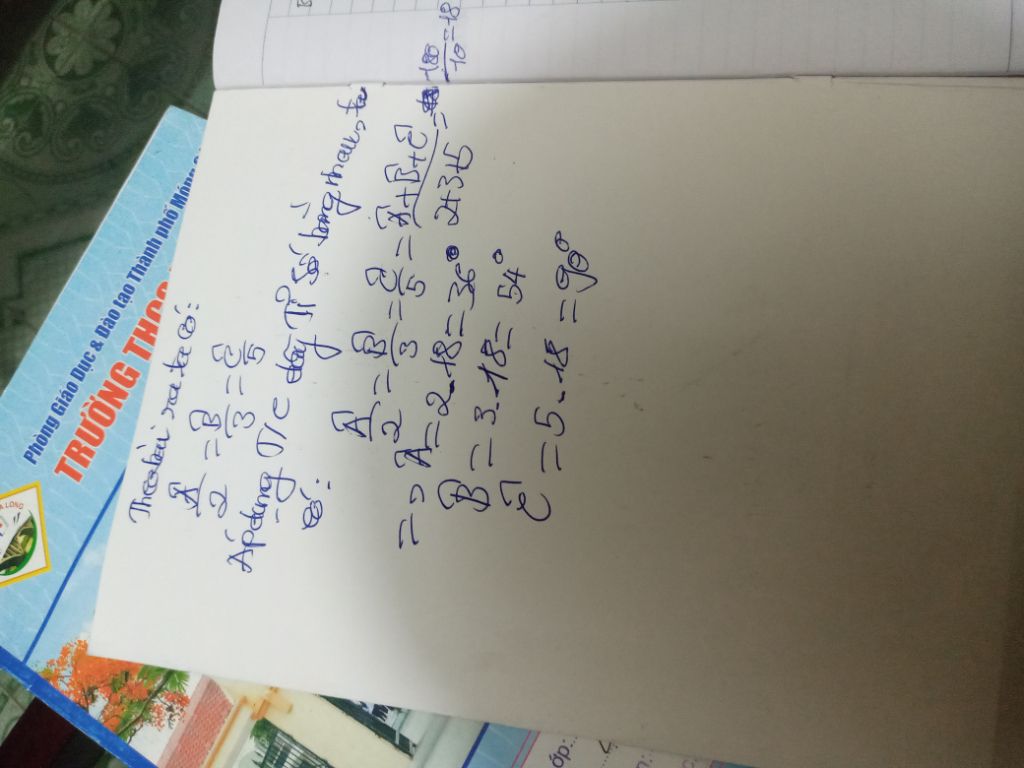 Phòng Giáo Dục & Đào tạo Thành phố Móng
TRƯỜNG THCS
LONG
Theo bài ra ta có:
Â/2 = B̂/3 = Ĉ/5
Áp dụng T/c dãy Tỉ số bằng nhau, ta
có:
Â/2 = B̂/3 = Ĉ/5 = Â+B̂+Ĉ/2+3+5 = 180/10 = 18
=> Â = 2.18 = 36°
B̂ = 3.18 = 54°
Ĉ = 5.18 = 90°
ớp: